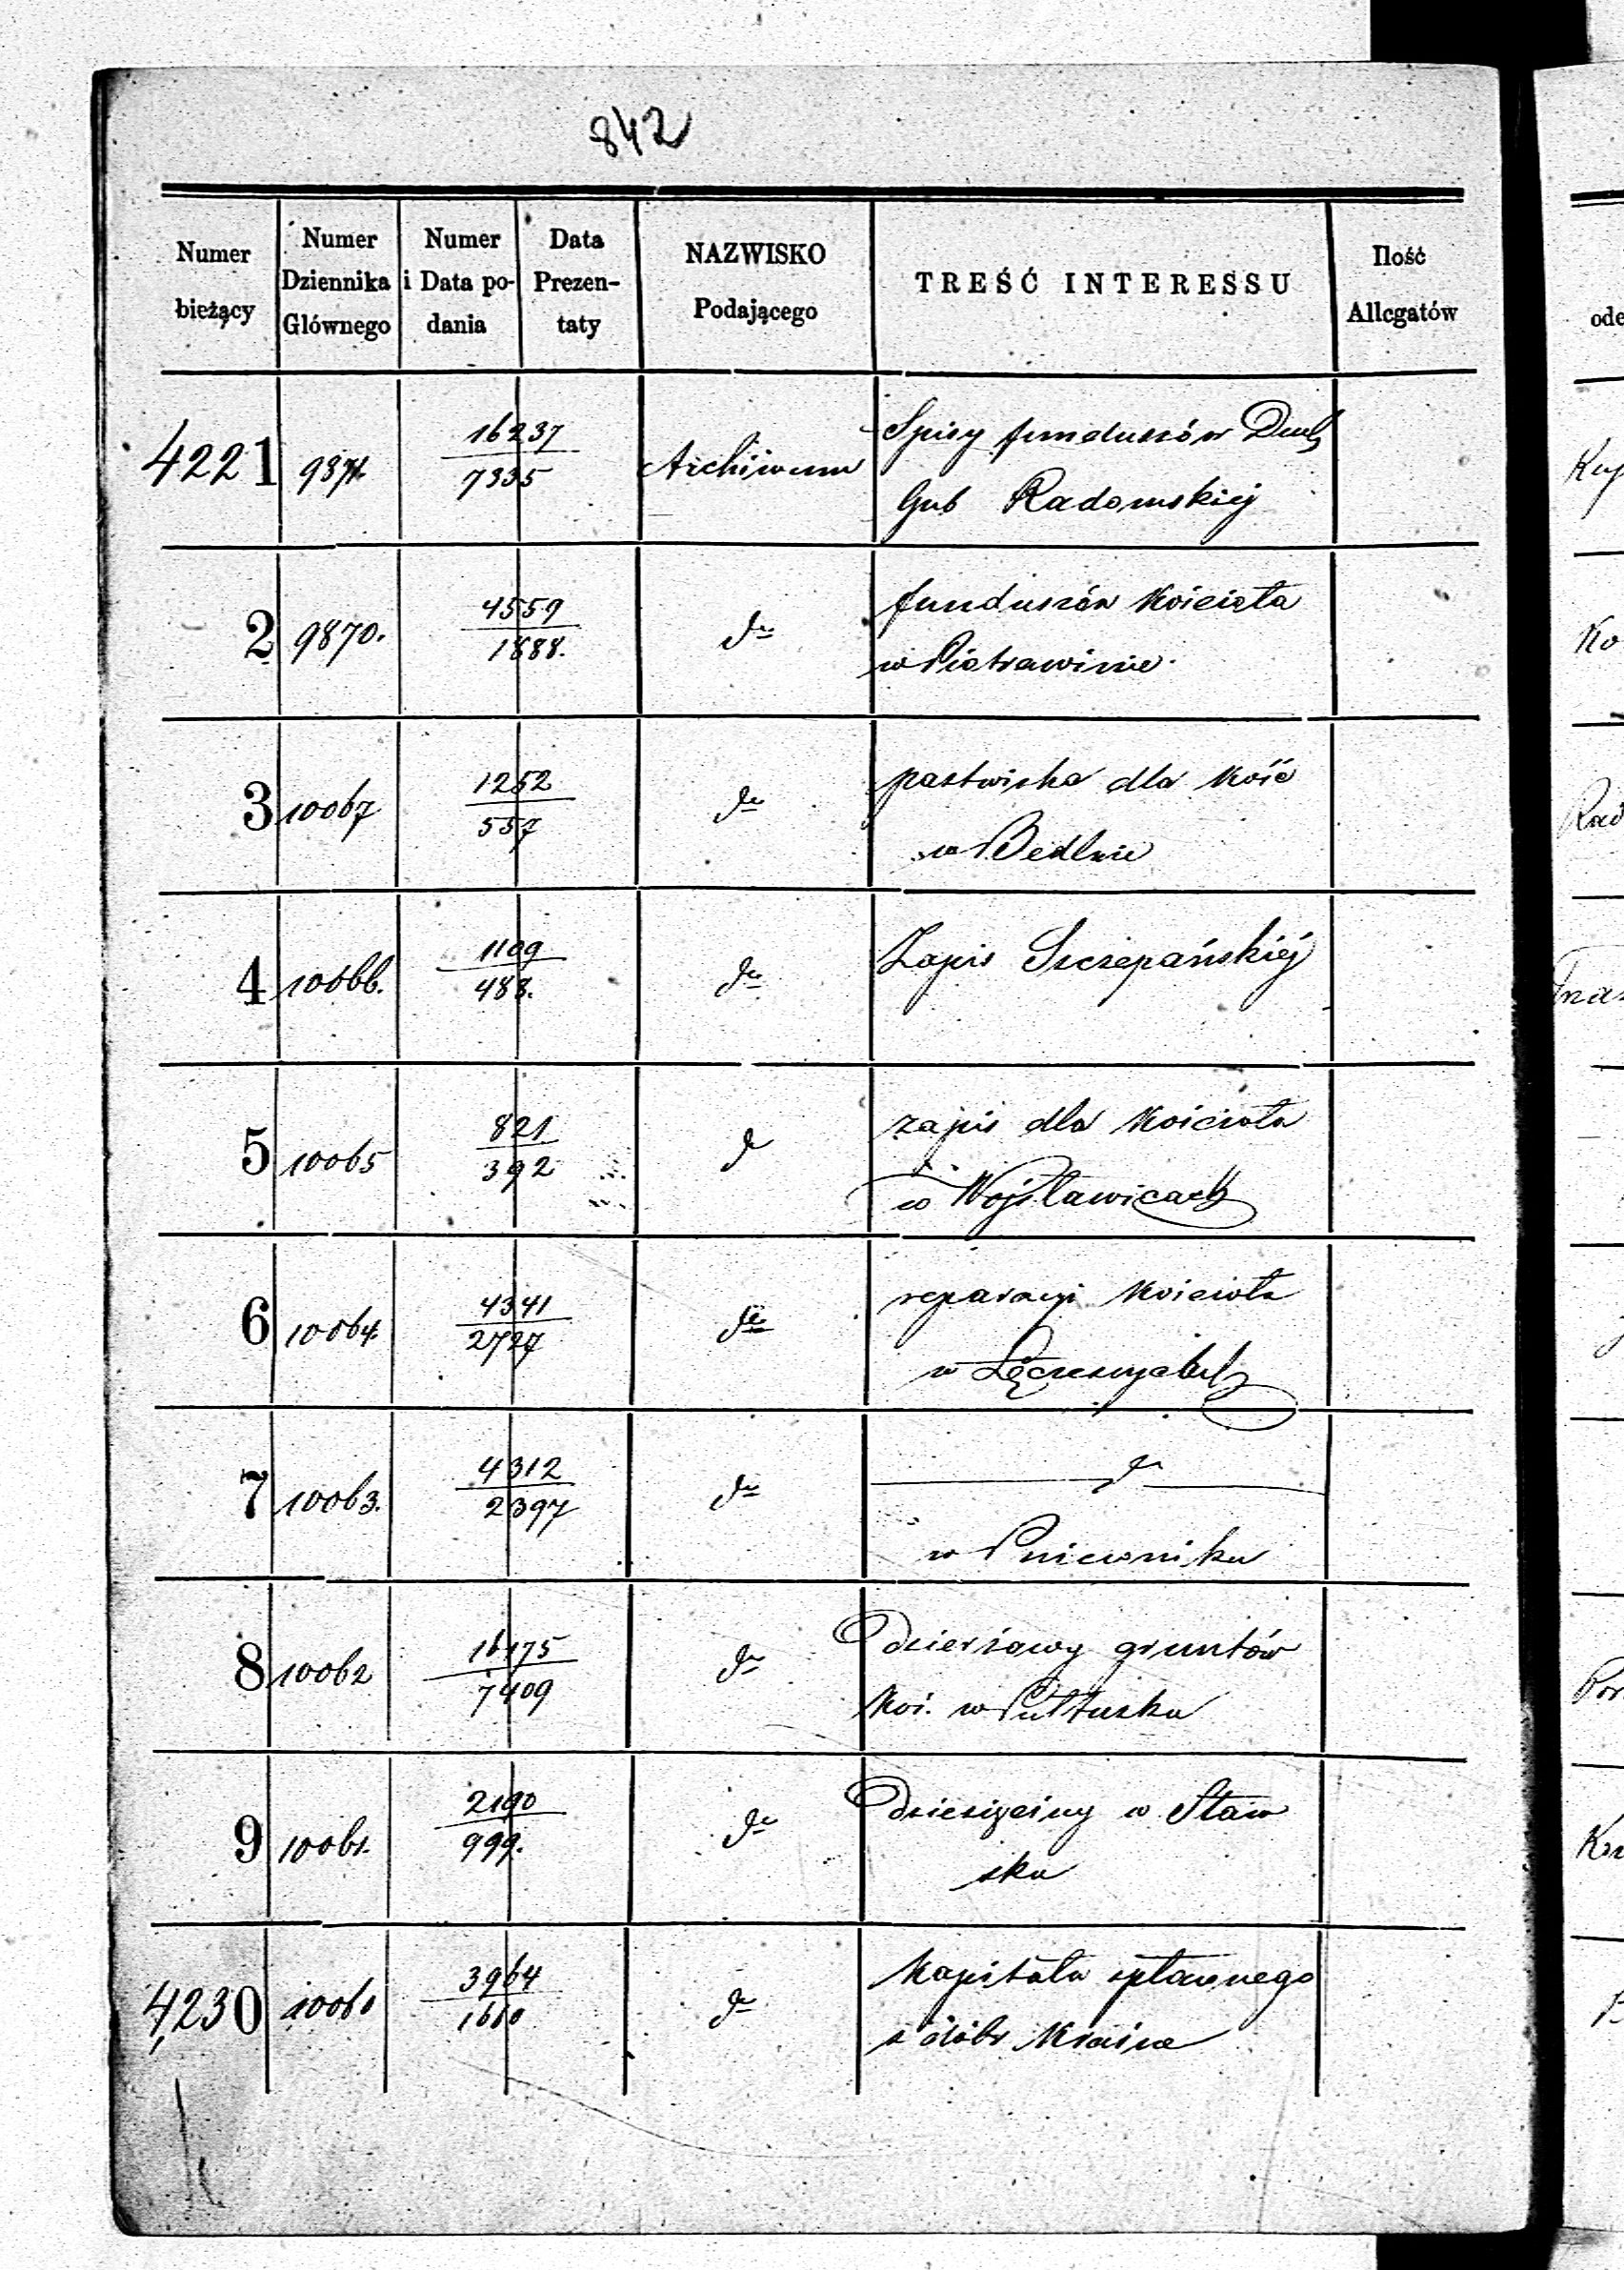 842
Numer bieżący | Numer Dziennika Głównego | Numer i Data podania | Data Prezentaty | NAZWISKO Podającego | TREŚĆ INTERESSU | Ilość Allegatów
4221 | 9871 | 16237 / 7335 | Archiwum | Spisy funduszów Duch
Gub Radomskiej
2 | 9870. | 4559 / 1888. | do | funduszów Kościoła
w Piotrawinie
3 | 10067 | 1252 / 557 | do | pastwiska dla Kość
w Bedlnie
4 | 10066. | 1109 / 488. | do | Zapis Szczepańskiéj
5 | 10065 | 821 / 392 | do | zapis dla Kościoła
w Wojsławicach
6 | 10064 | 4341 / 2727 | do | reparacyi Kościoła
w Łęczeszycach
7 | 10063. | 4312 / 2397 | do | do
w Pniewniku
8 | 10062 | 16175 / 7409 | do | Dzierżawy gruntów
Koś. w Pułtusku
9 | 10061. | 2190 / 999. | do | Dziesięciny w Staw
sku
4230 | 10060 | 3964 / 1660 | do | Kapitału spławnego
z dóbr